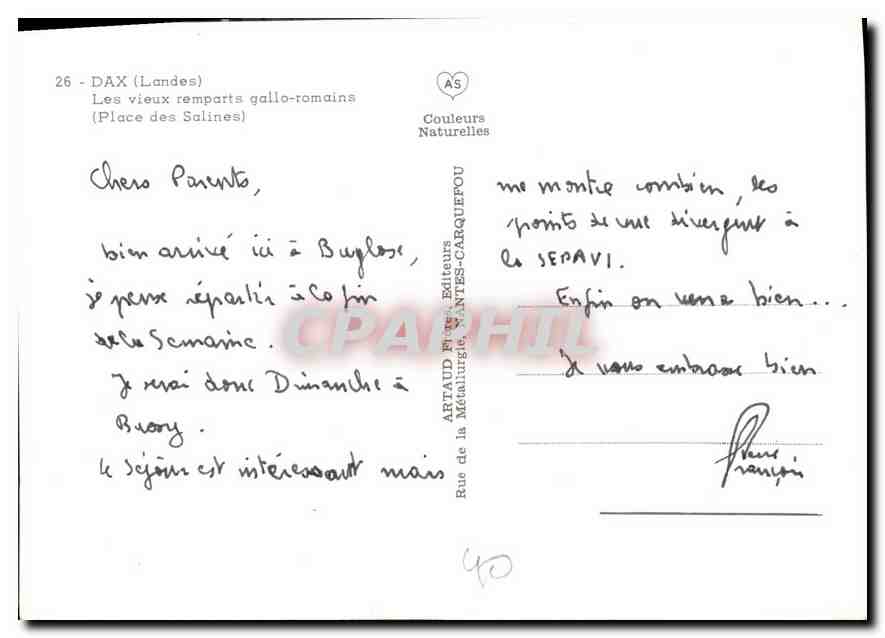 26 - DAX (Landes)
Les vieux remparts gallo-romains
(Place des Salines)
AS
Couleurs
Naturelles
Chers Parents,
bien arrivé ici à Buglose,
je pense répartir à la fin
de la Semaine.
Je serai donc Dimanche à
Bussy.
Le séjour est intéressant mais
ARTAUD Frères, Editeurs
Rue de la Métallurgie, NANTES-CARQUEFOU
me montre combien, les
points de vue divergent à
la SEPAVI.
Enfin on verra bien...
Je vous embrasse bien
Pierre
François
40
CPAPHIL